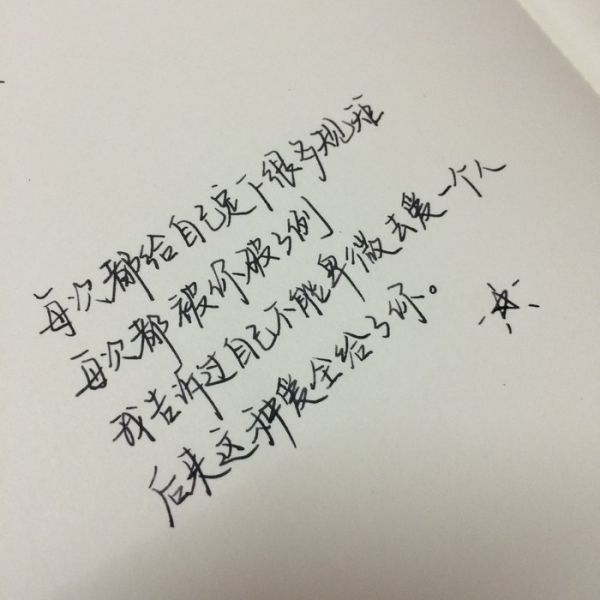 每次都给自己定下很多规矩
每次都被你破了例
我告诉过自己不能卑微去爱一个人
后来这种爱全给了你。